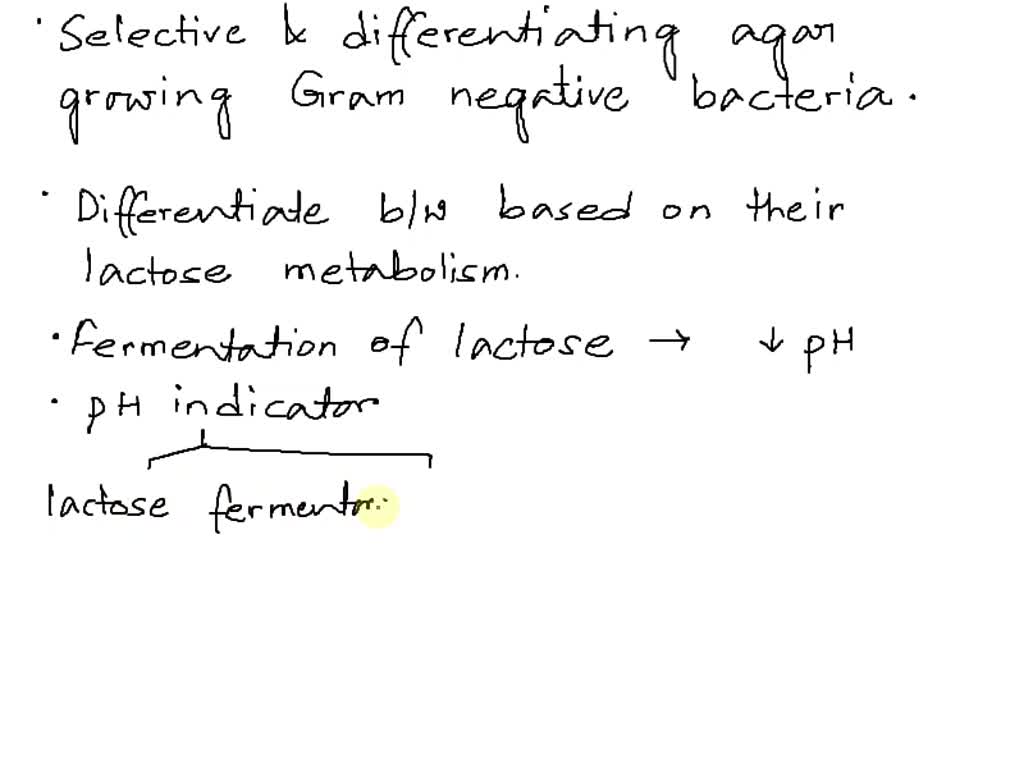 · Selective & differentiating agar
growing Gram negative bacteria.
· Differentiate b/w based on their
lactose metabolism.
· Fermentation of lactose → ↓ pH
· pH indicator
lactose fermentr